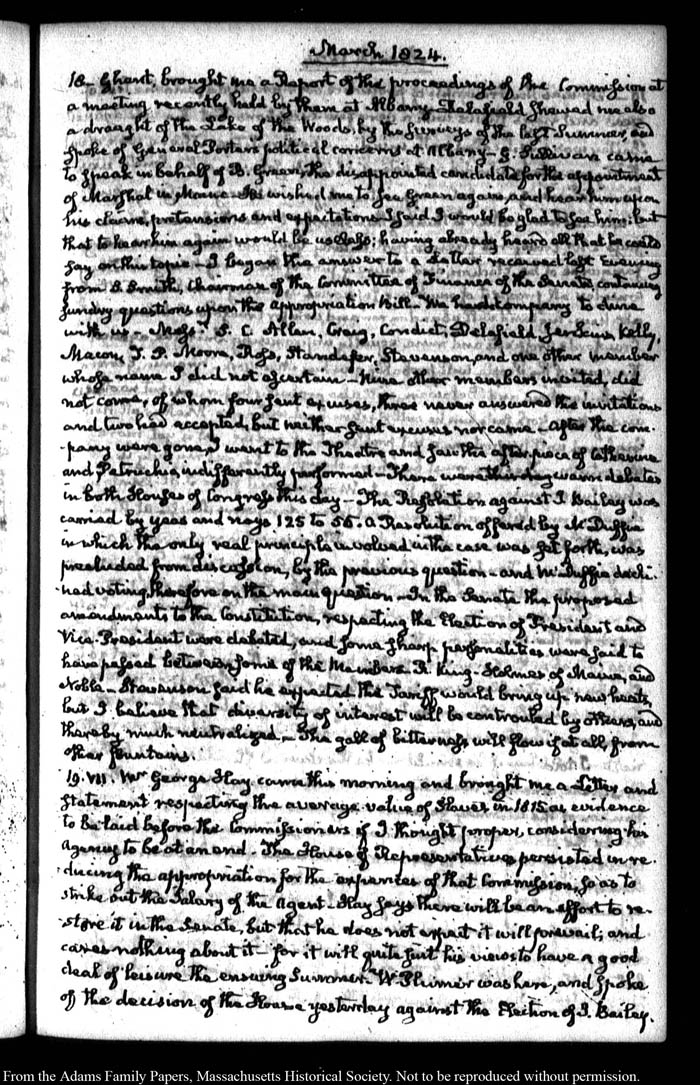 March 1824.
18. Ghent, brought me a Report of the proceedings of the Commission at
a meeting recently held by them at Albany. Delafield shewed me also
a draught of the Lake of the Woods, by the surveys of the last Summer, and
spoke of General Porter's political concerns at Albany. G. Sullivan came
to speak in behalf of B. Green, the disappointed candidate for the appointment
of Marshal in Maine. He wished me to see Green again, and hear him upon
his claims, pretensions and expectations. I said I would be glad to see him; but
that to hear him again would be useless; having already heard all that he could
say on this topic. I began the answer to a Letter received last Evening
from S. Smith, Chairman of the Committee of Finance of the Senate, containing
sundry questions upon the Appropriation Bill. We had company to dine
with us. Messrs. S. C. Allen, Craig, Condict, Delafield, Jenkins, Kelly,
Macon, T. P. Moore, Ross, Standefer, Stevenson, and one other member
whose name I did not ascertain. Nine other members invited, did
not come, of whom four sent excuses, three never answered the invitations
and two had accepted, but neither sent excuses nor came. After the com-
-pany were gone, I went to the Theatre and saw the afterpiece of Catherine
and Petruchio, indifferently performed. There were this day warm debates
in both Houses of Congress this day. The Resolution against J. Bailey was
carried by yeas and nays 125 to 55. A Resolution offered by McDuffie
in which the only real principle involved in the case was set forth, was
precluded from discussion, by the previous question. and McDuffie decli-
-ned voting therefore on the main question. In the Senate the proposed
amendments to the Constitution, respecting the Election of President and
Vice-President were debated, and some sharp personalities were said to
have passed between some of the Members. R. King. Holmes of Maine, and
Noble. Stevenson said he expected the Tariff would bring up new heats
but I believe that diversity of interest will be controuled by others, and
thereby much neutralized. The gall of bitterness will flow if at all, from
other fountains.
19. VII. Mr George Hay came this morning and brought me a Letter and
Statement respecting the average value of Slaves in 1815 as evidence
to be laid before the Commissioners if I thought proper, considering his
Agency to be at an end. The House of Representatives persisted in re-
-ducing the appropriation for the expences of that Commission, so as to
strike out the Salary of the Agent. Hay says there will be an effort to re-
-store it in the Senate, but that he does not expect it will prevail; and
cares nothing about it. for it will quite suit his views to have a good
deal of leisure the ensuing Summer. W. Plumer was here, and spoke
of the decision of the House yesterday against the Election of J. Bailey.
From the Adams Family Papers, Massachusetts Historical Society. Not to be reproduced without permission.